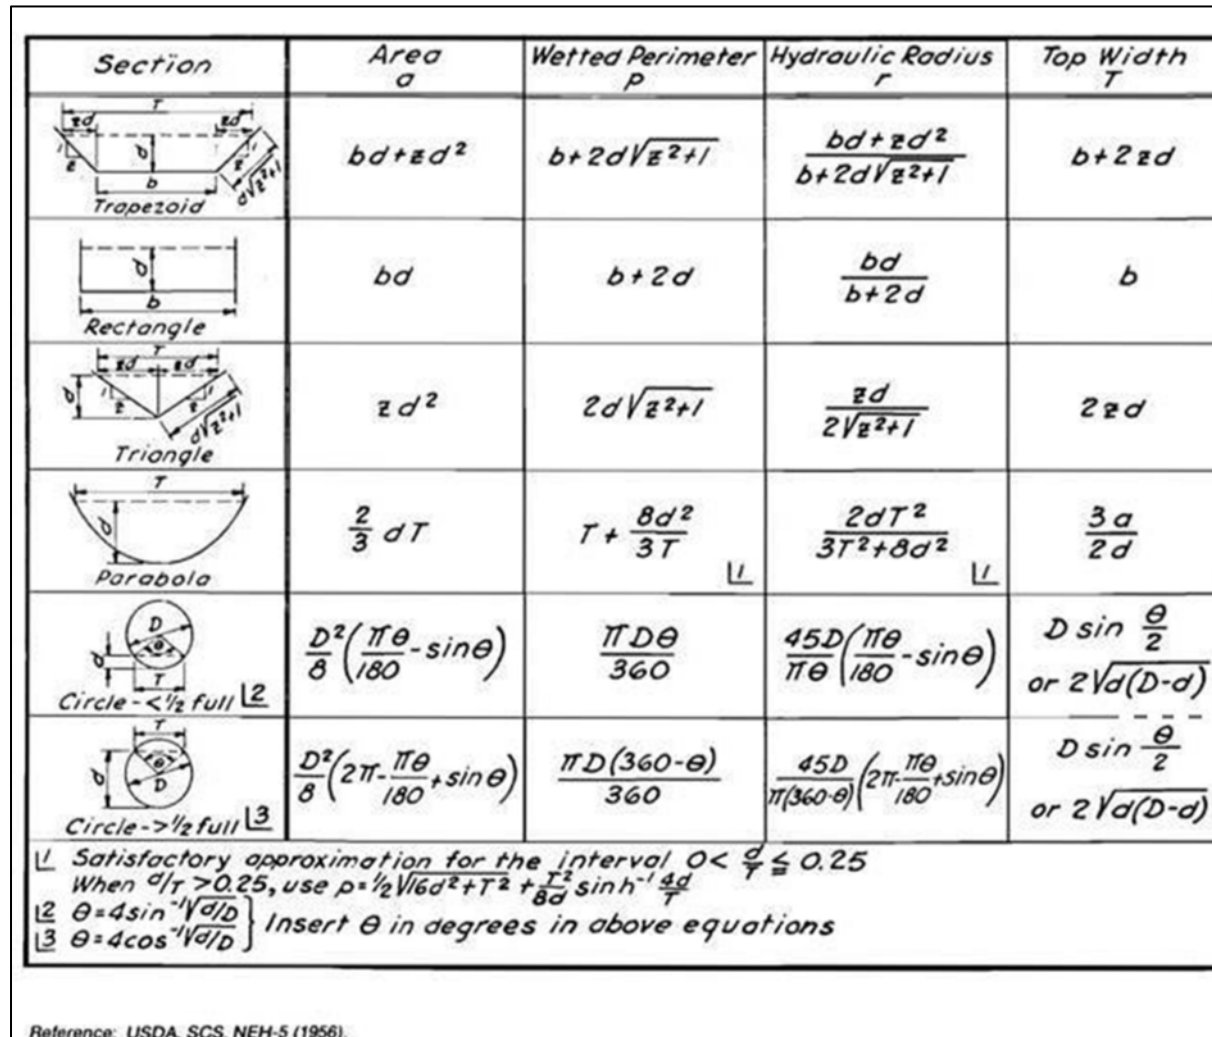 Section	Area a	Wetted Perimeter P	Hydraulic Radius r	Top Width T
T
zd zd
1 z d z 1
b d√z²+1
Trapezoid	bd+zd²	b+2d√z²+1	(bd+zd²)/(b+2d√z²+1)	b+2zd
d
b
Rectangle	bd	b+2d	bd/(b+2d)	b
T
zd zd
d 1 z z 1
d√z²+1
Triangle	zd²	2d√z²+1	zd/(2√z²+1)	2zd
T
d
Parabola	2/3 dT	T + 8d²/3T ⌊1	2dT²/(3T²+8d²) ⌊1	3a/2d
D
d θ
T
Circle-<1/2 full ⌊2	D²/8 (πθ/180 - sinθ)	πDθ/360	45D/πθ (πθ/180 - sinθ)	D sin θ/2 or 2√d(D-d)
T
d θ
D
Circle->1/2 full ⌊3	D²/8 (2π-πθ/180+sinθ)	πD(360-θ)/360	45D/π(360-θ) (2π-πθ/180+sinθ)	D sin θ/2 or 2√d(D-d)
⌊1 Satisfactory approximation for the interval 0< d/T ≦ 0.25
When d/T >0.25, use p=1/2√16d²+T² + T²/8d sinh⁻¹ 4d/T
⌊2 θ=4sin⁻¹√d/D
⌊3 θ=4cos⁻¹√d/D } Insert θ in degrees in above equations
Reference: USDA, SCS, NEH-5 (1956).